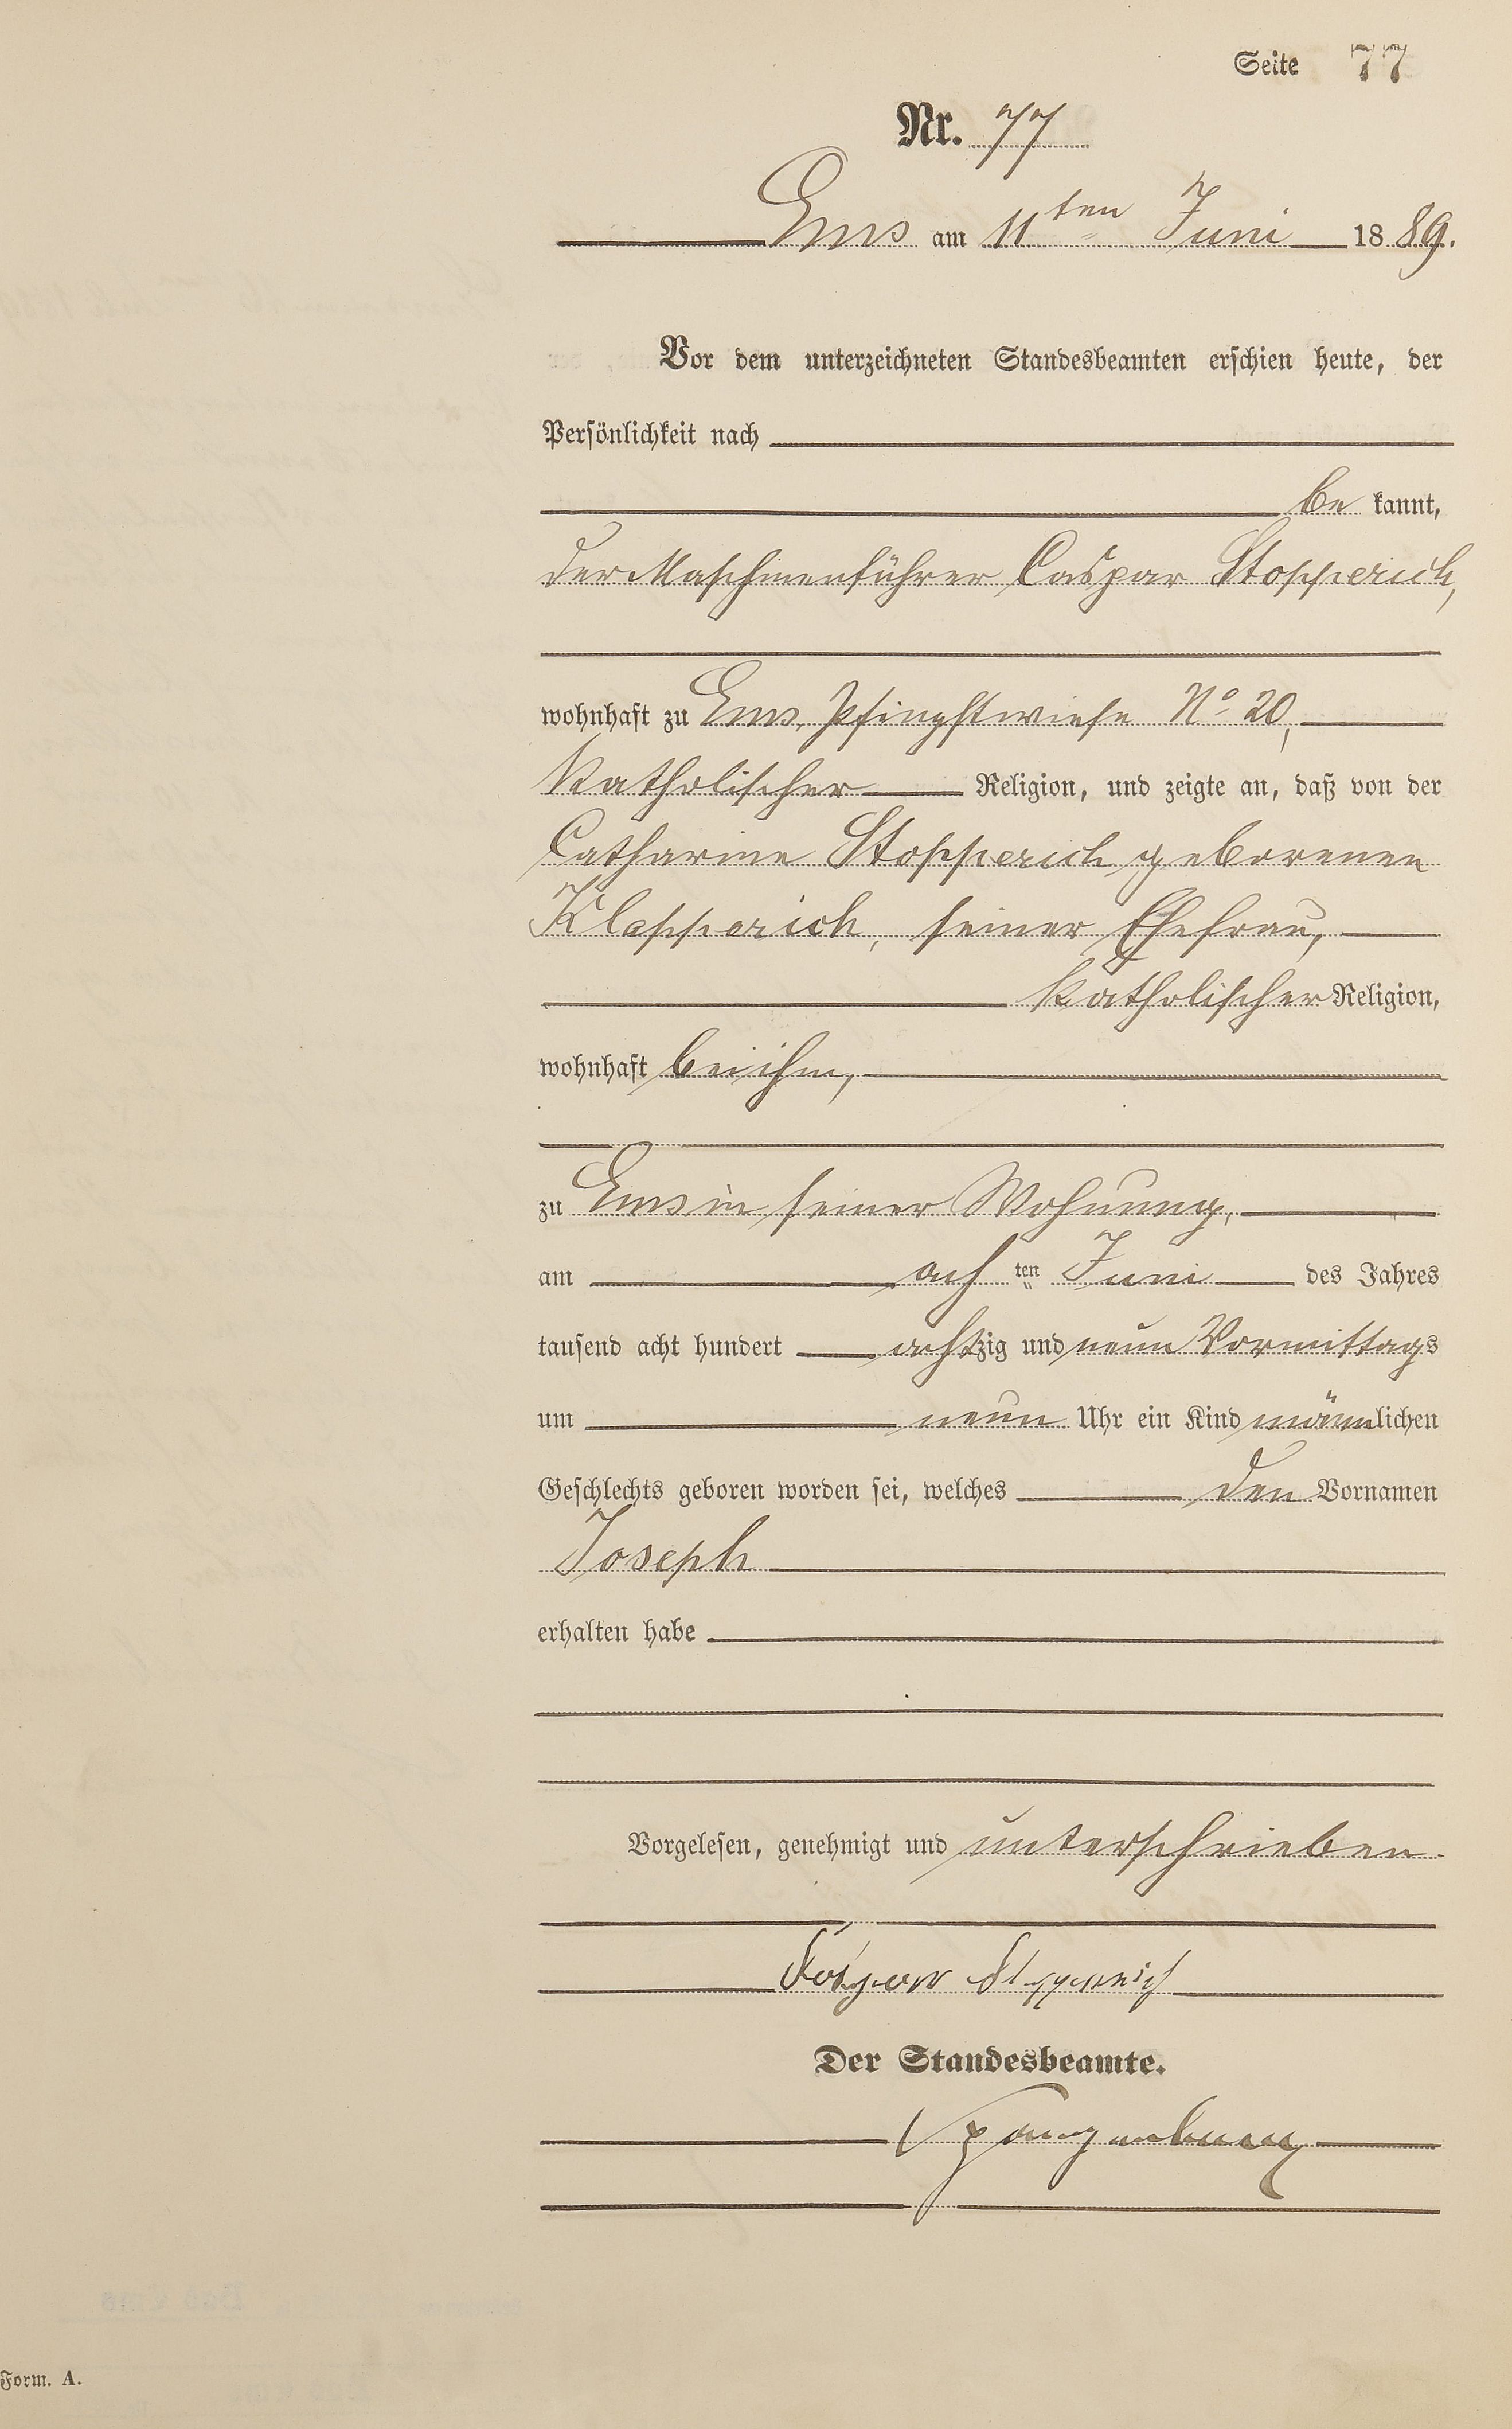 Seite 77
Nr. 77
Ems am 11ten Juni 1889.
Vor dem unterzeichneten Standesbeamten erschien heute, der
Persönlichkeit nach
be kannt,
der Maschinenführer Caspar Stopperich,
wohnhaft zu Ems, Pfingstwiese No 20,
katholischer Religion, und zeigte an, daß von der
Catharine Stopperich geborenen
Klapperich, seiner Ehefrau,
katholischer Religion,
wohnhaft bei ihm,
zu Ems in seiner Wohnung,
am ach ten Juni des Jahres
tausend acht hundert achtzig und neun Vormittags
um neun Uhr ein Kind männlichen
Geschlechts geboren worden sei, welches den Vornamen
Joseph
erhalten habe
Vorgelesen, genehmigt und unterschrieben.
Caspar Stopperich
Der Standesbeamte.
Spangenberg
Form. A.